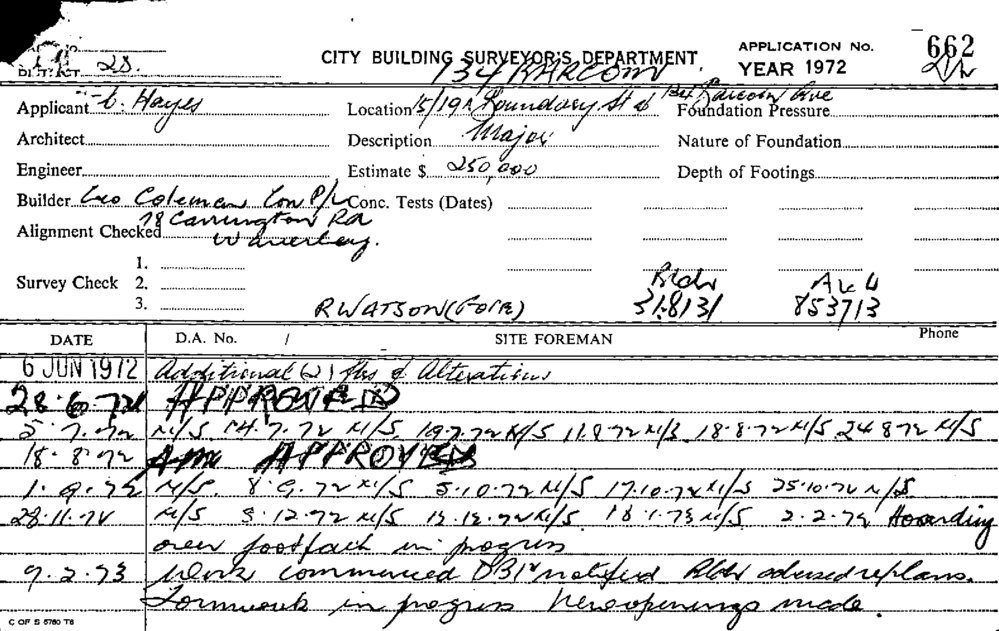 CITY BUILDING SURVEYOR'S DEPARTMENT
APPLICATION No. 662
YEAR 1972
DISTRICT 28.
134 BARCOM
Applicant C. Hayes
Location 15/19A Boundary St & 134 Barcom Ave
Foundation Pressure
Architect
Description Major
Nature of Foundation
Engineer
Estimate $ 250,000
Depth of Footings
Builder Leo Coleman Con P/L
Conc. Tests (Dates)
78 Carrington Rd
Alignment Checked Waverley.
Survey Check 1.
2.
3.
R WATSON (FORE)
Bldr
318131
853713
DATE D.A. No. / SITE FOREMAN Phone
6 JUN 1972 Additional (2) flrs & Alterations
28.6.72 APPROVED
5.7.72 M/S 14.7.72 M/S 19.7.72 M/S 11.8.72 M/S 18.8.72 M/S 24.8.72 M/S
18.8.72 Am APPROVED
1.9.72 M/S. 8.9.72 M/S 5.10.72 M/S 17.10.72 M/S 25.10.72 M/S
28.11.72 M/S 5.12.72 M/S 12.12.72 M/S 18.1.73 M/S 2.2.73 Hoarding
over footpath in progress
9.2.73 Work commenced DBI notified Bldr advised re plans.
Formwork in progress New openings made.
C OF S 5760 T6